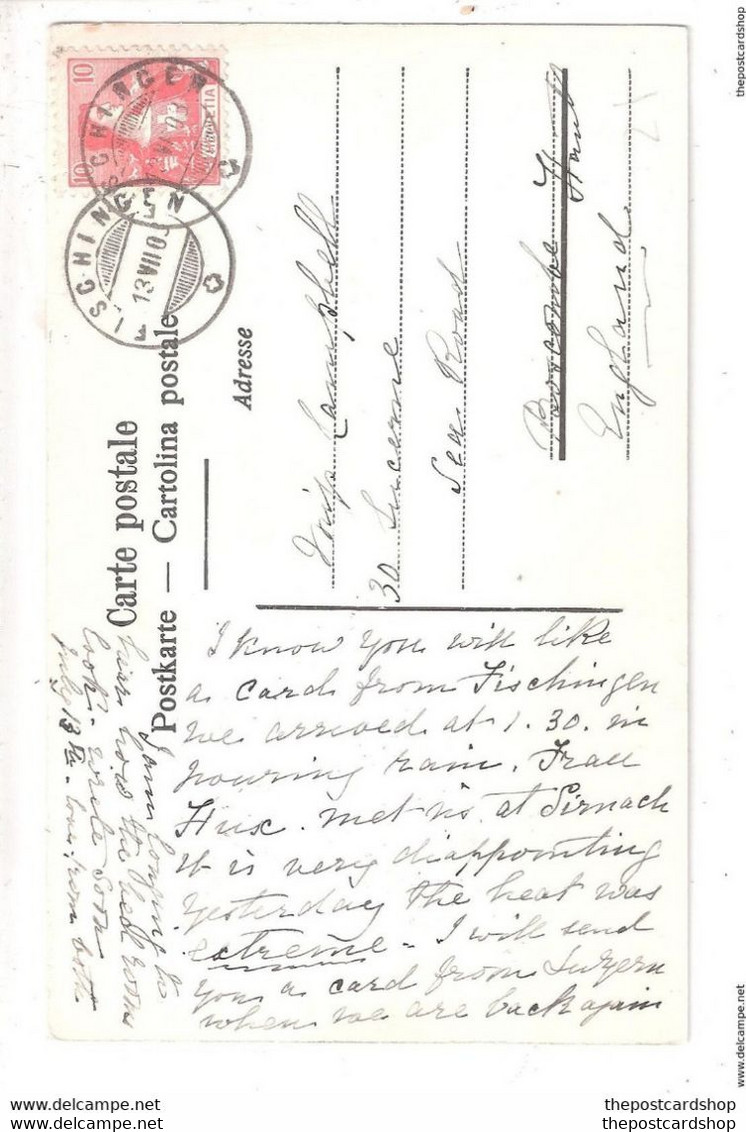 thepostcardshop
10
10
HELVETIA
FISCHINGEN
FISCHINGEN
13 VII 0
Carte postale
Postkarte — Cartolina postale
Adresse
Miss Campbell
30 Lucerne
Sea Road
Boscombe Hants
England
I know you will like
a card from Fischingen
we arrived at 1.30. in
pouring rain. Frau
Hux. met us at Sirnach
it is very diappointing
Yesterday the heat was
extreme - I will send
you a card from Luzern
when we are back again
I am longing to
hear how the bed rooms
look. write soon
July 13th. love from both
www.delcampe.net
www.delcampe.net
thepostcardshop
www.delcampe.net
thepostcardshop